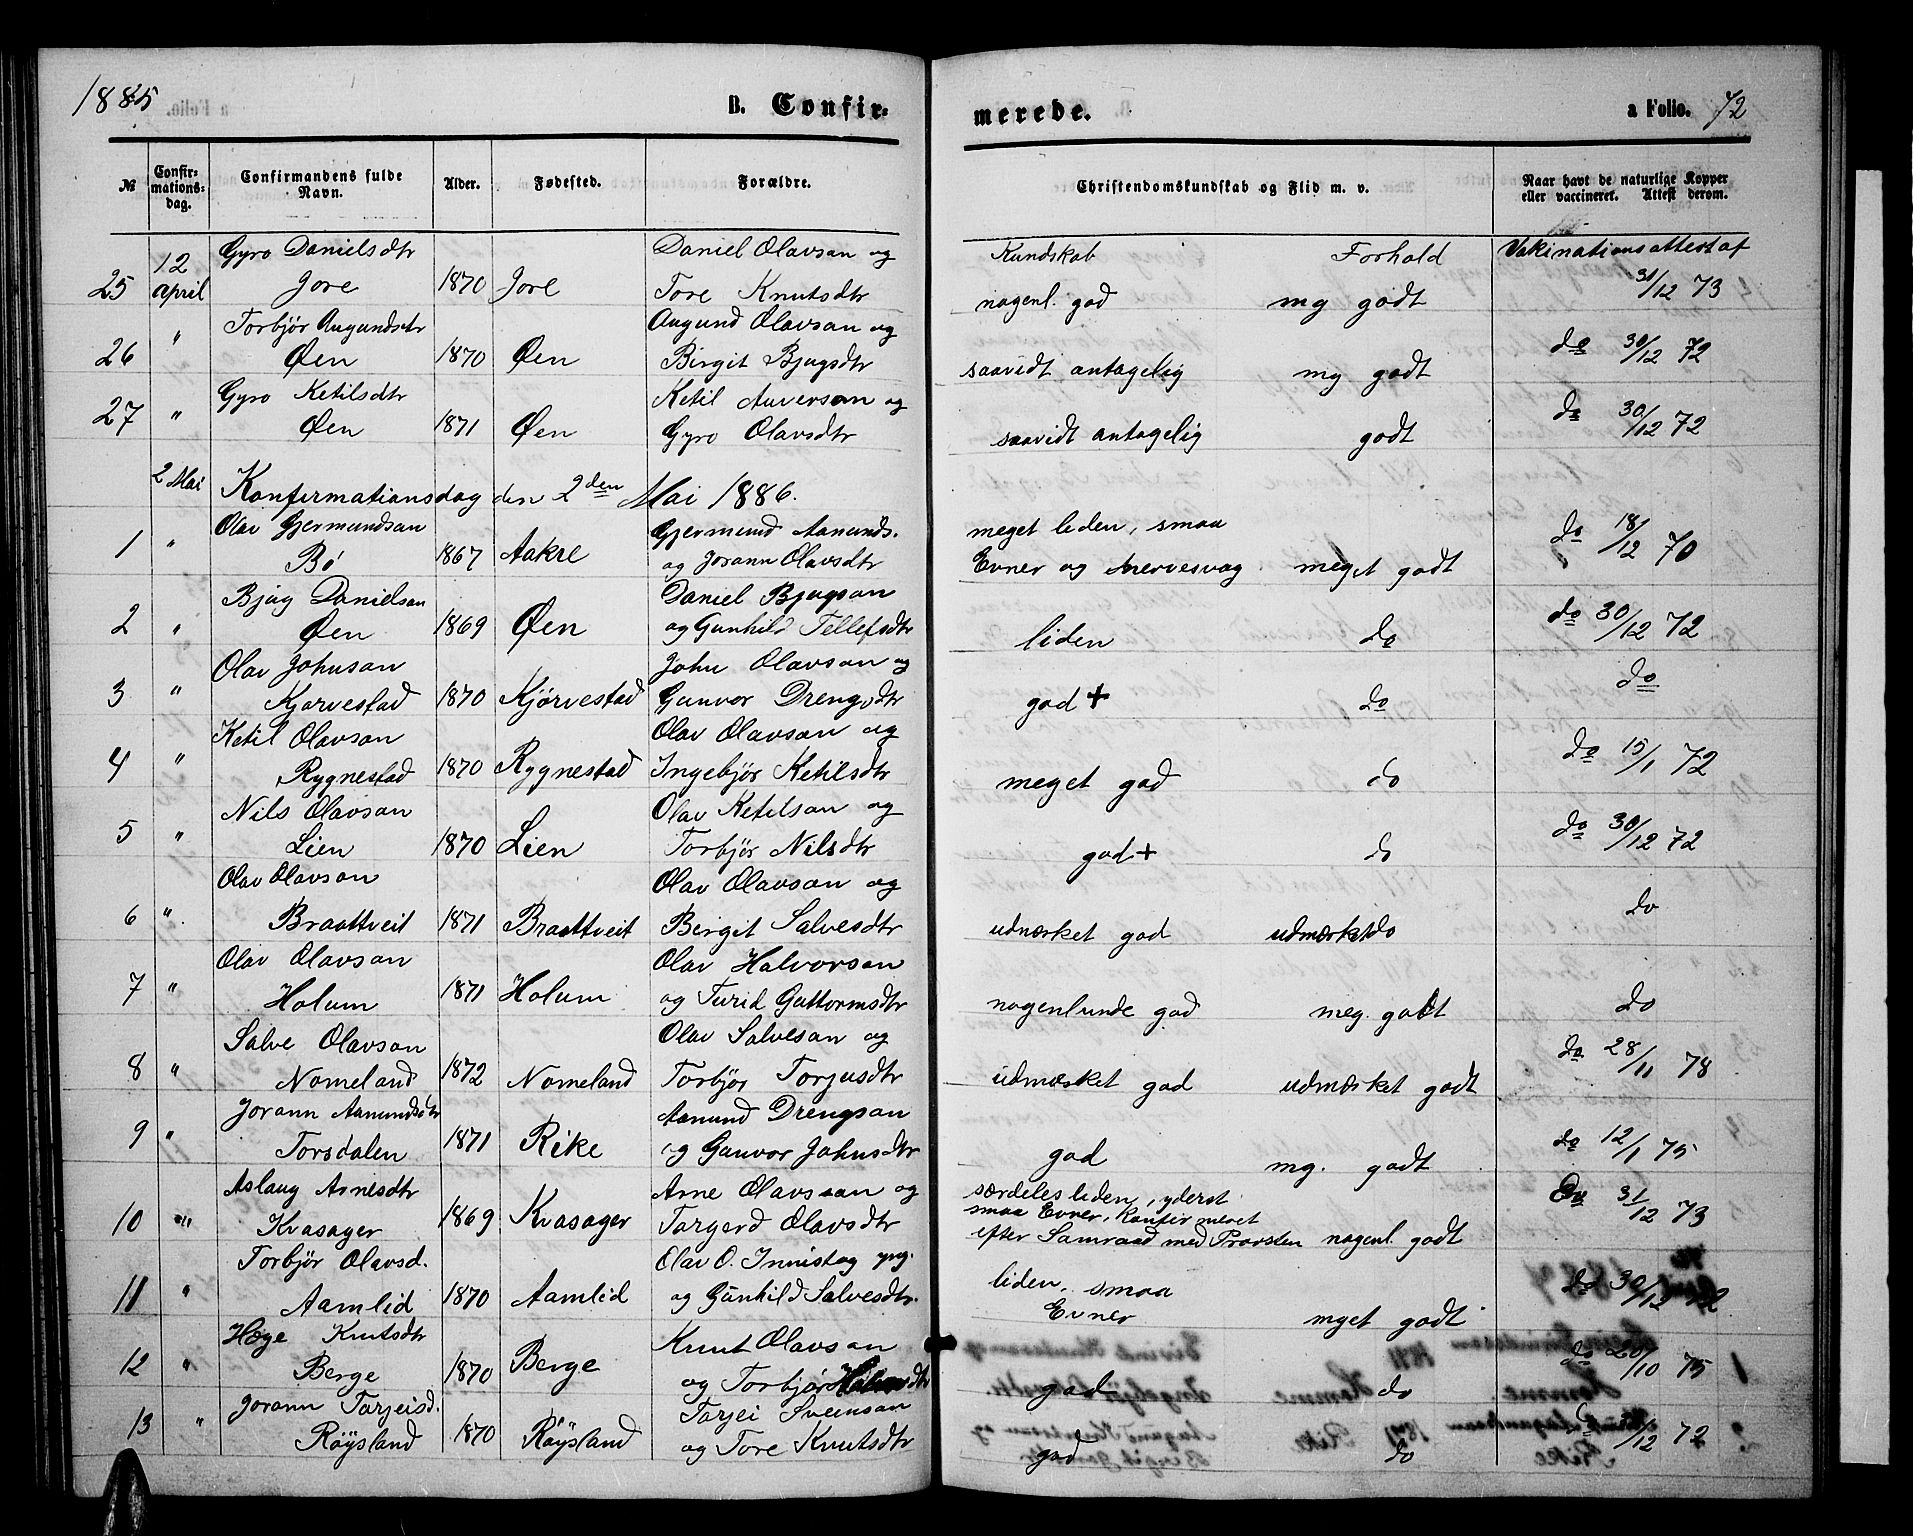 1885
B. Confirmerede.
a Folio. 72
№ | Confirmationsdag. | Confirmandens fulde Navn. | Alder. | Fødested. | Forældre. | Christendomskundskab og Flid m. v. | Naar havt de naturlige Kopper eller vaccineret. Attest derom.
Kundskab | Forhold | Vakinationsattest af
25 | 12 April | Gyro Danielsdtr Jore | 1870 | Jore | Daniel Olavson og Tore Knutsdtr | nogenl. god | mg godt | 31/12 73
26 | " | Torbjør Augundsdtr Øen | 1870 | Øen | Augund Olavson og Birgit Bjugsdtr | saavidt antagelig | mg godt | do 30/12 72
27 | " | Gyro Ketilsdtr Øen | 1871 | Øen | Ketil Auverson og Gyro Olavsdtr | saavidt antagelig | godt | do 30/12 72
2 Mai | Konfirmationsdag den 2den Mai 1886.
1 | " | Olav Gjermundsan Bø | 1867 | Aakre | Gjermund Aamunds. og Jorann Olavsdtr | meget liden, smaa Evner og nervesvag | meget godt | do 18/12 70
2 | " | Bjug Danielsan Øen | 1869 | Øen | Daniel Bjugsan og Gunhild Tellefsdtr | liden | do | do 30/12 72
3 | " | Olav Johnsan Kjørvestad | 1870 | Kjørvestad | John Olavsan og Gunvor Drengsdtr | god + | do | do
4 | " | Ketil Olavson Rygnestad | 1870 | Rygnestad | Olav Olavsan og Ingebjør Ketilsdtr | meget god | do | do 15/1 72
5 | " | Nils Olavson Lien | 1870 | Lien | Olav Ketilsan og Torbjør Nilsdtr | god + | do | do 30/12 72
6 | " | Olav Olavson Braattveit | 1871 | Braattveit | Olav Olavsan og Birgit Salvesdtr | udmærket god | udmærket do | do
7 | " | Olav Olavsan Holum | 1871 | Holum | Olav Halvorsan og Turid Guttormsdtr | nogenlunde god | meg. godt | do
8 | " | Salve Olavson Nomeland | 1872 | Nomeland | Olav Salvesan og Torbjør Torjusdtr | udmærket god | udmærket godt | do 28/11 78
9 | " | Jorann Aamundsdtr Torsdalen | 1871 | Rike | Aamund Drengsan og Gunvor Johnsdtr | god | mg. godt | do 12/1 75
10 | " | Aslaug Arnesdtr Kvasager | 1869 | Kvasager | Arne Olavsson og Targerd Olavsdtr | særdeles liden, yderst smaa Evner, konfirmeret efter Samraad med Provsten | nogenl. godt | do 31/12 73
11 | " | Torbjør Olavsd. Aamlid | 1870 | Aamlid | Olav O. Innistog yng. og Gunhild Salvesdtr. | liden, smaa Evner | mget godt | do 30/12 72
12 | " | Hæge Knutsdtr Berge | 1870 | Berge | Knut Olavsan og Torbjør | god | do | do 20/10 75
13 | " | Jorann Tarjeisd. Røysland | 1870 | Røysland | Tarjei Sveinsan og Tore Knutsdtr | god | do | 30/12 72